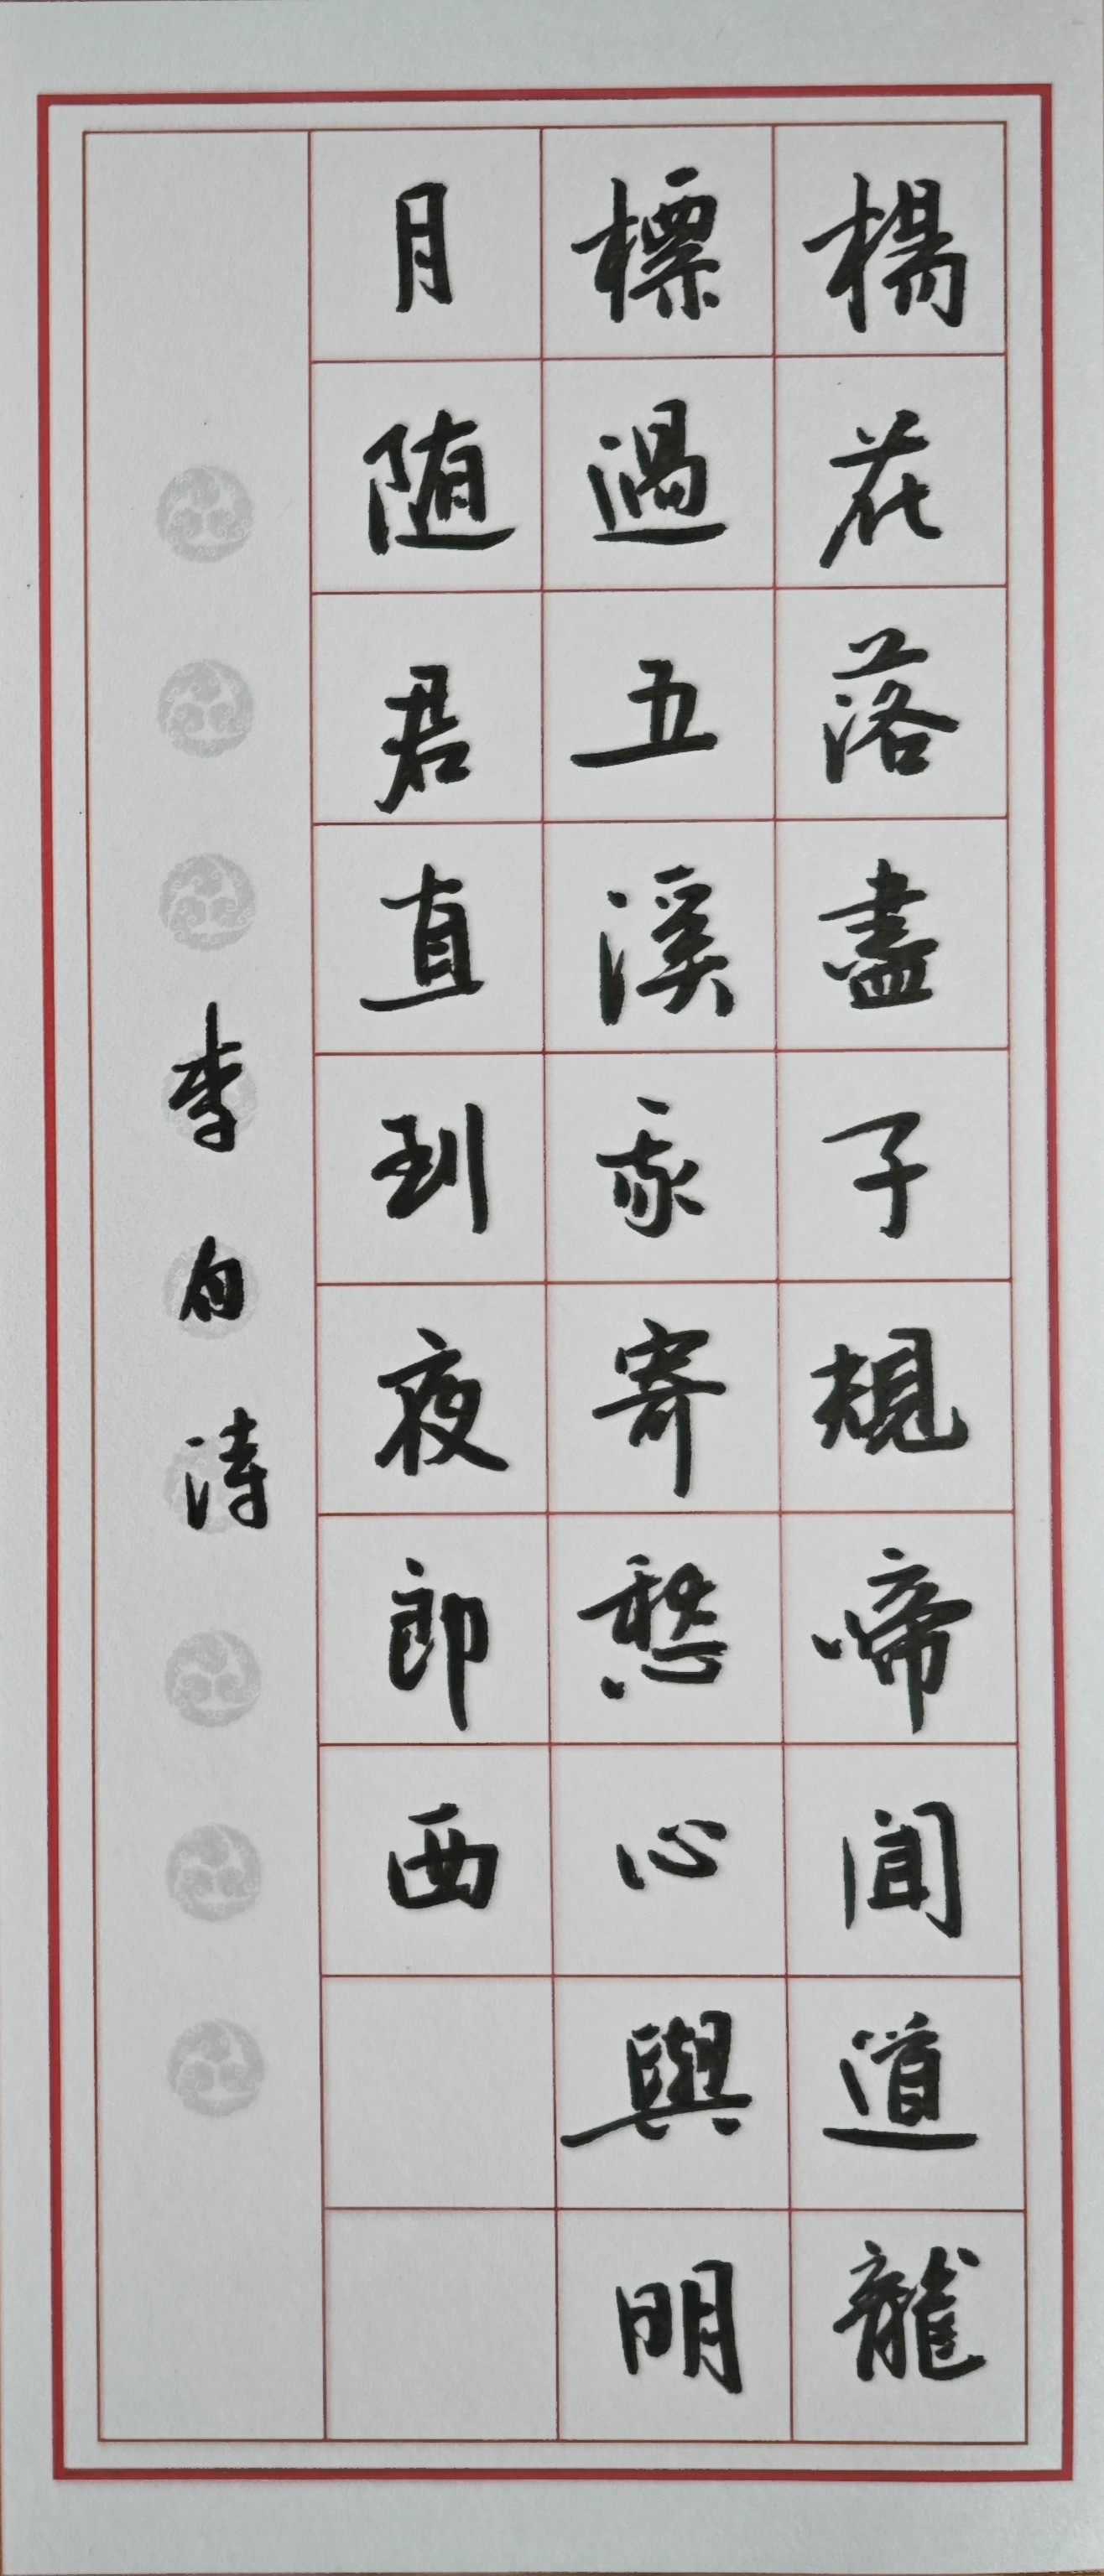 楊花落盡子規啼聞道龍
標過五溪我寄愁心與明
月随君直到夜郎西
李白诗